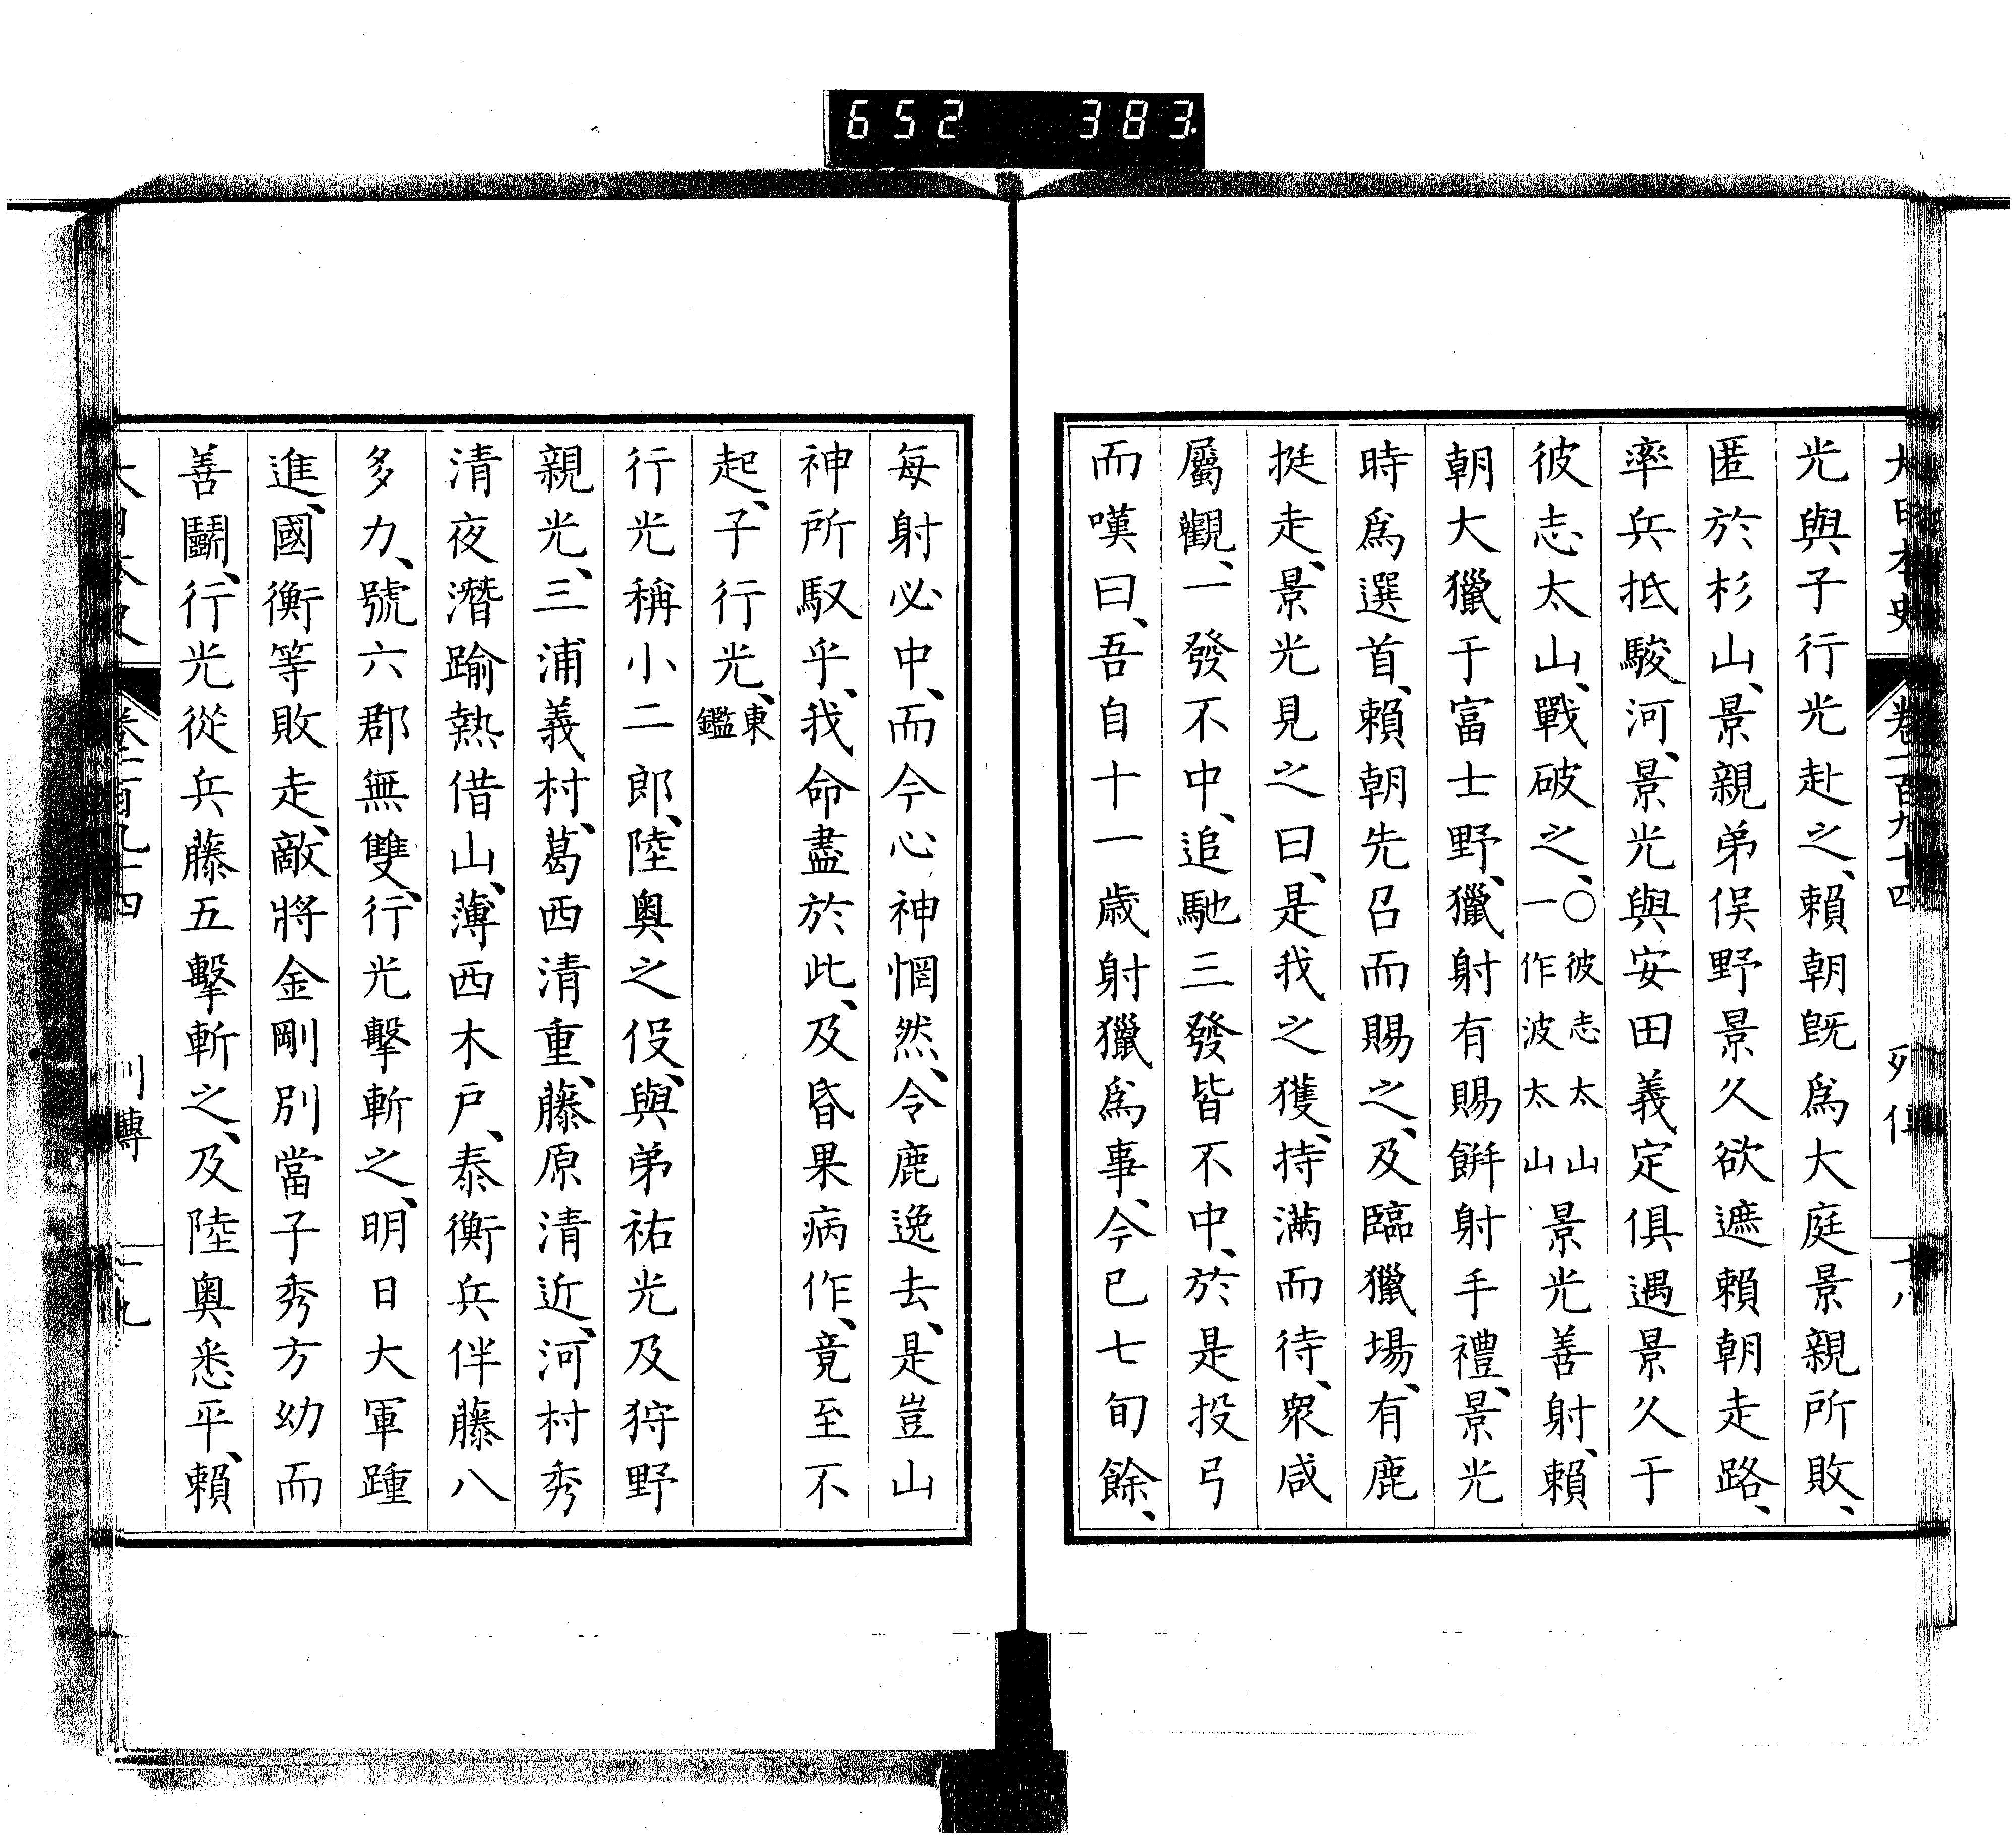 652 383
大日本史 卷一百九十四 列傳 十八
光與子行光赴之、賴朝既爲大庭景親所敗、
匿於杉山、景親弟俣野景久欲遮賴朝走路、
率兵抵駿河、景光與安田義定俱遇景久于
彼志太山、戰破之、○彼志太山一作波太山景光善射、賴
朝大獵于富士野、獵射有賜餠射手禮、景光
時爲選首、賴朝先召而賜之、及臨獵場、有鹿
挺走、景光見之曰、是我之獲、持滿而待、衆咸
屬觀、一發不中、追馳三發皆不中、於是投弓
而嘆曰、吾自十一歲射獵爲事、今已七旬餘、
每射必中、而今心神惘然、令鹿逸去、是豈山
神所馭乎、我命盡於此、及昏果病作、竟至不
起、子行光、東鑑
行光稱小二郎、陸奧之役、與弟祐光及狩野
親光、三浦義村、葛西清重、藤原清近、河村秀
清夜潛踰熱借山、薄西木戶、泰衡兵伴藤八
多力、號六郡無雙、行光擊斬之、明日大軍踵
進、國衡等敗走、敵將金剛別當子秀方幼而
善鬭、行光從兵藤五擊斬之、及陸奧悉平、賴
大日本史 卷一百九十四 列傳 十九